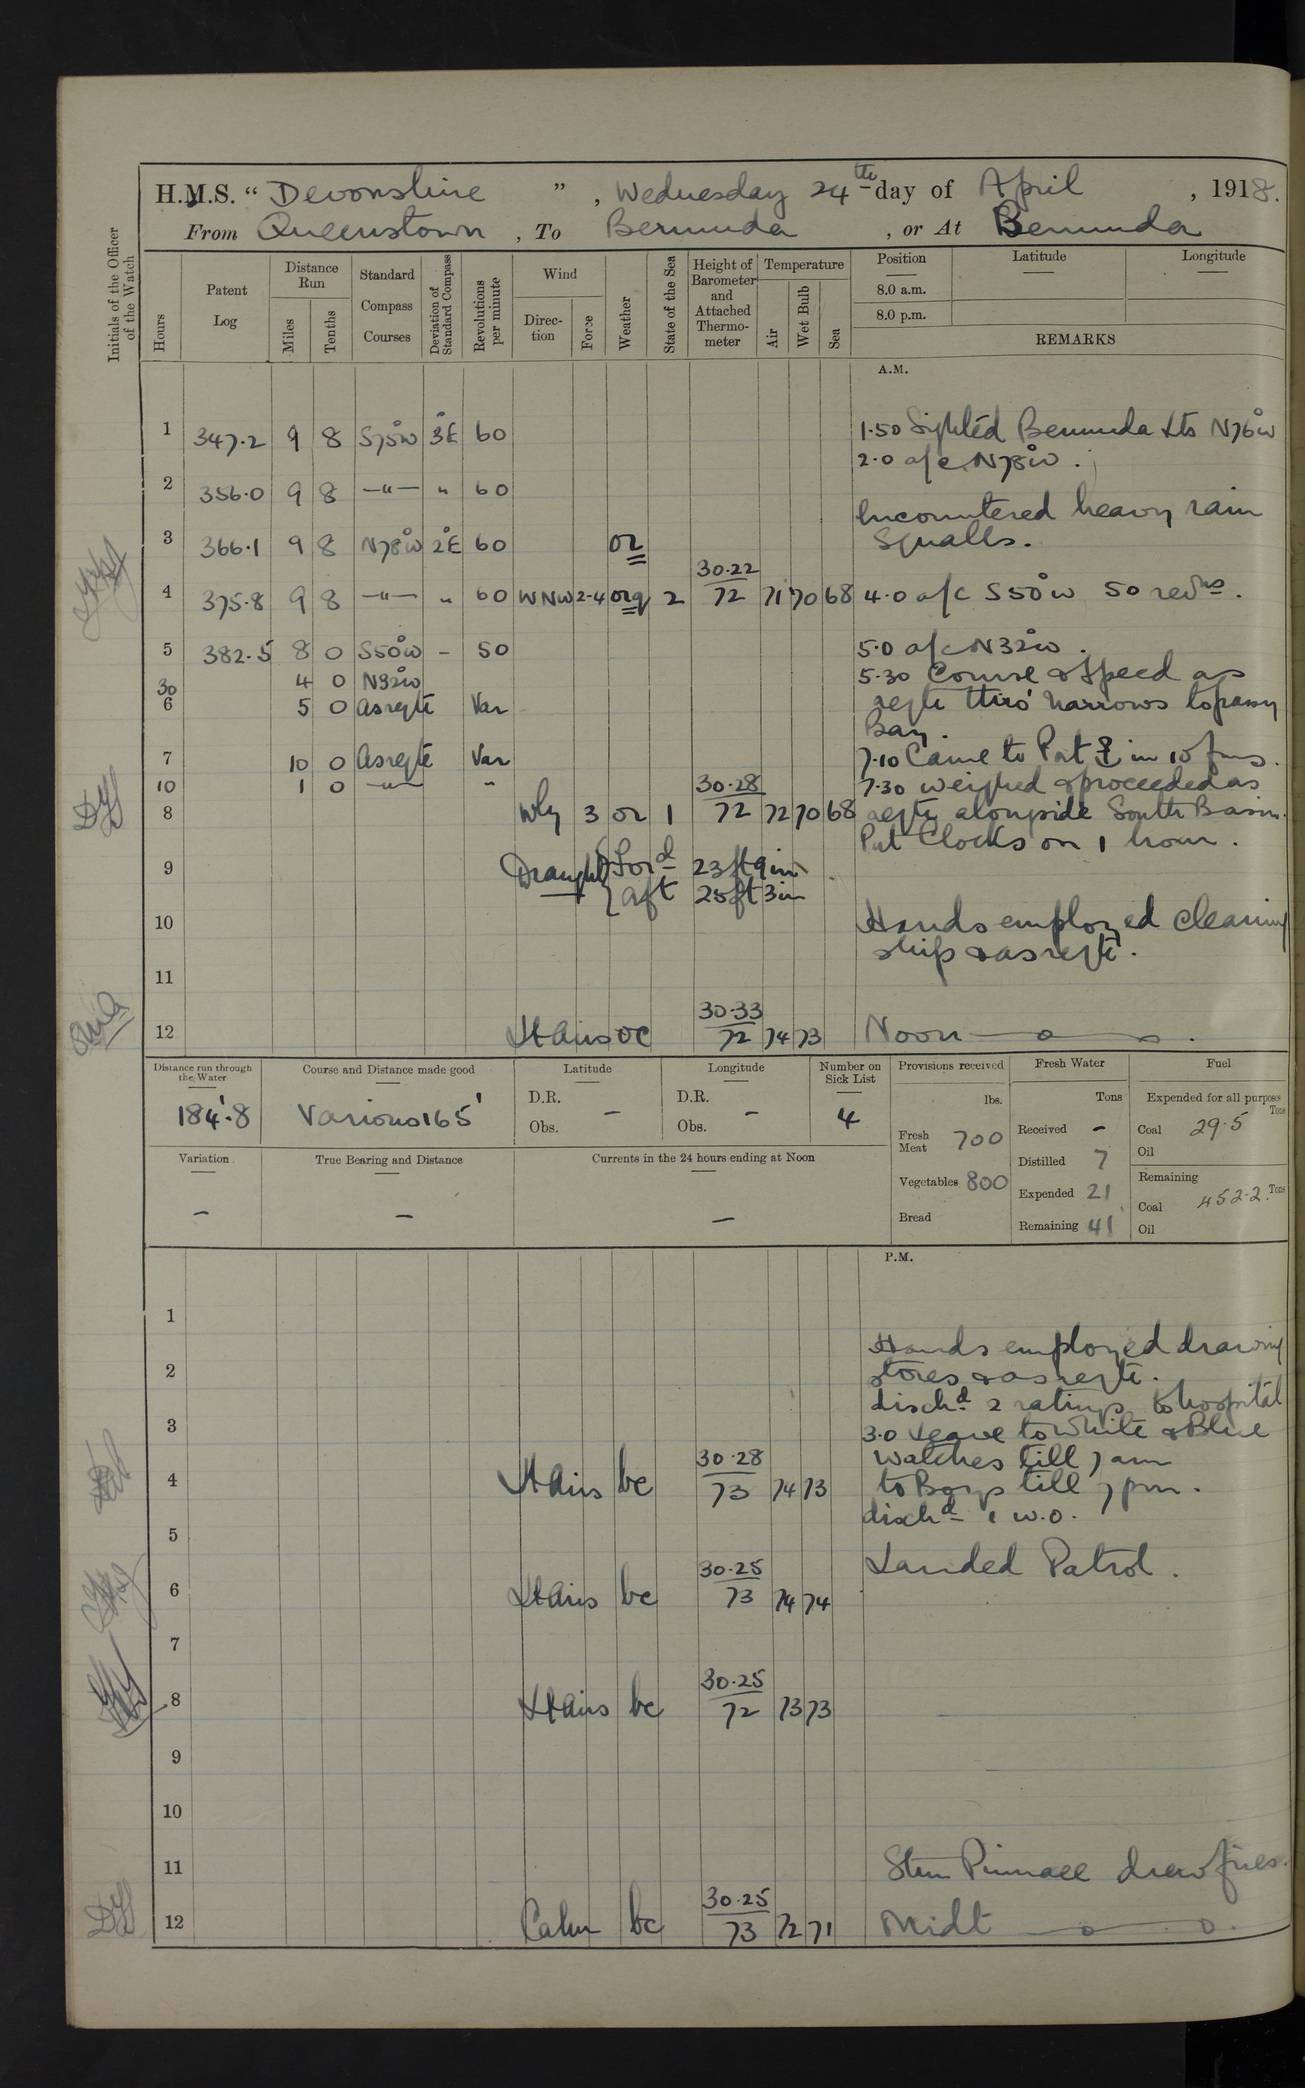 H.M.S. “ Devonshire ”, Wednesday 24th day of April, 1918.
From Queenstown, To Bermuda, or At Bermuda
Initials of the Officer of the Watch
Hours
Patent Log
Distance Run
Miles
Tenths
Standard Compass Courses
Deviation of Standard Compass
Revolutions per minute
Wind
Direction
Force
Weather
State of the Sea
Height of Barometer and Attached Thermometer
Temperature
Air
Wet Bulb
Sea
Position Latitude Longitude
8.0 a.m.
8.0 p.m.
REMARKS
A.M.
1 347.2 9 8 S75°W 3°E 60 1.50 Sighted Bermuda Lts N76°W
2.0 a/c N78°W.
2 356.0 9 8 —"— " 60
Encountered heavy rain
3 366.1 9 8 N78°W 2°E 60 or squalls.
30.22
4 375.8 9 8 —"— " 60 WNW 2-4 orq 2 72 71 70 68 4.0 a/c S50°W 50 revns.
5 382.5 8 0 S50°W - 50 5.0 a/c N32°W.
30 4 0 N32°W 5.30 Course & speed as
6 5 0 As reqte Var reqte thro' Narrows to Grassy
Bay.
7 10 0 As reqte Var 7.10 Came to Port ⚓ in 10 fms.
10 1 0 —"— " 30.28 7.30 weighed & proceeded as
8 Wly 3 or 1 72 72 70 68 reqte alongside South Basin.
Put Clocks on 1 hour.
9 Draught { Ford 23ft 9in
{ aft 25ft 3in
10 Hands employed cleaning
ship & as reqte.
11
30.33
12 Lt airs oc 72 74 73 Noon
Distance run through the Water
184'.8
Course and Distance made good
Various 165'
Latitude
D.R.
Obs. –
Longitude
D.R.
Obs. –
Number on Sick List
4
Provisions received
lbs.
Fresh Meat 700
Vegetables 800
Bread
Fresh Water
Tons
Received -
Distilled 7
Expended 21
Remaining 41
Fuel
Expended for all purposes
Tons
Coal 29.5
Oil
Remaining
Tons
Coal 452.2
Oil
Variation
–
True Bearing and Distance
–
Currents in the 24 hours ending at Noon
–
P.M.
1
Hands employed drawing
2 stores & as reqte.
dischd 2 ratings to hospital
3 3.0 Leave to White & Blue
30.28 Watches till 7 am
4 Lt airs bc 73 74 73 to Boys till 7 pm.
dischd 1 W.O.
5
30.25 Landed Patrol.
6 Lt airs bc 73 74 74
7
30.25
8 Lt airs bc 72 73 73
9
10
11 Stm Pinnace drew fires.
30.25
12 Calm bc 73 72 71 Midt